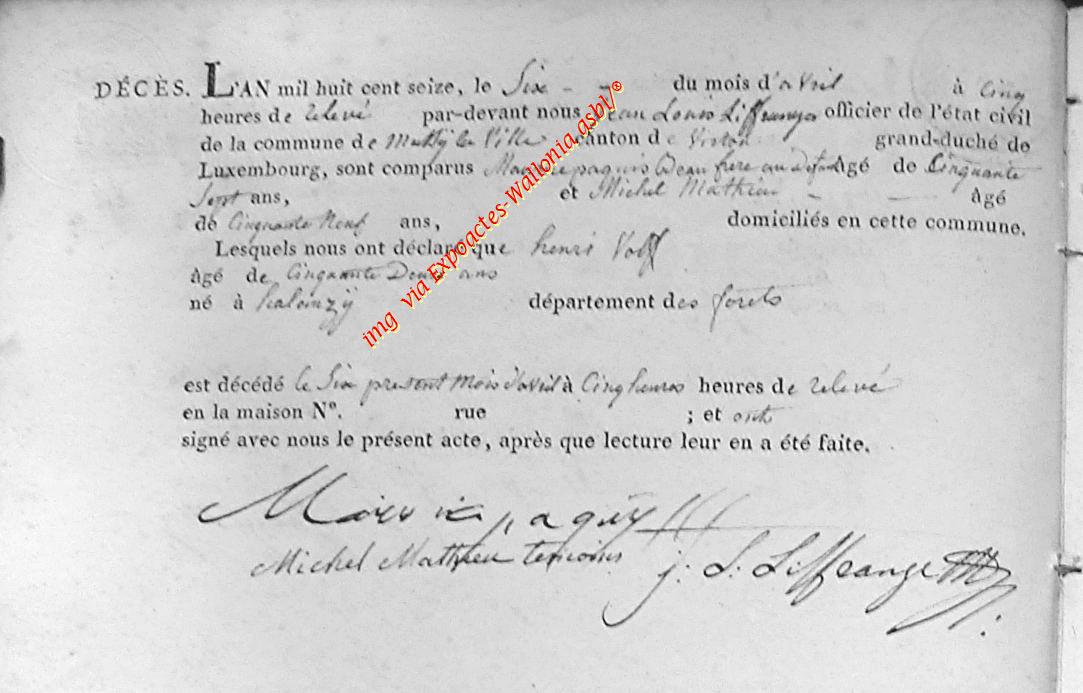 DÉCÈS. L'AN mil huit cent seize, le Six - - du mois d'avril à Cinq
heures de relevé par-devant nous Jean Louis Liffrange officier de l'état civil
de la commune de Mussÿ la Ville canton de Virton grand-duché de
Luxembourg, sont comparus paquis Beau frere au Defunt âgé de Cinquante
Sept ans, et Michel Mathieu - - âgé
de Cinquante Neuf ans, domiciliés en cette commune.
Lesquels nous ont déclaré que henri
âgé de Cinquante Deux ans
né à halanzÿ département des forets
est décédé le Six present mois d'avril à Cinq heures heures de relevé
en la maison N°. rue ; et ont
signé avec nous le présent acte, après que lecture leur en a été faite.
Michel Mathieu temoins
j: L: Liffrange
img via Expoactes-Wallonia.asbl/®